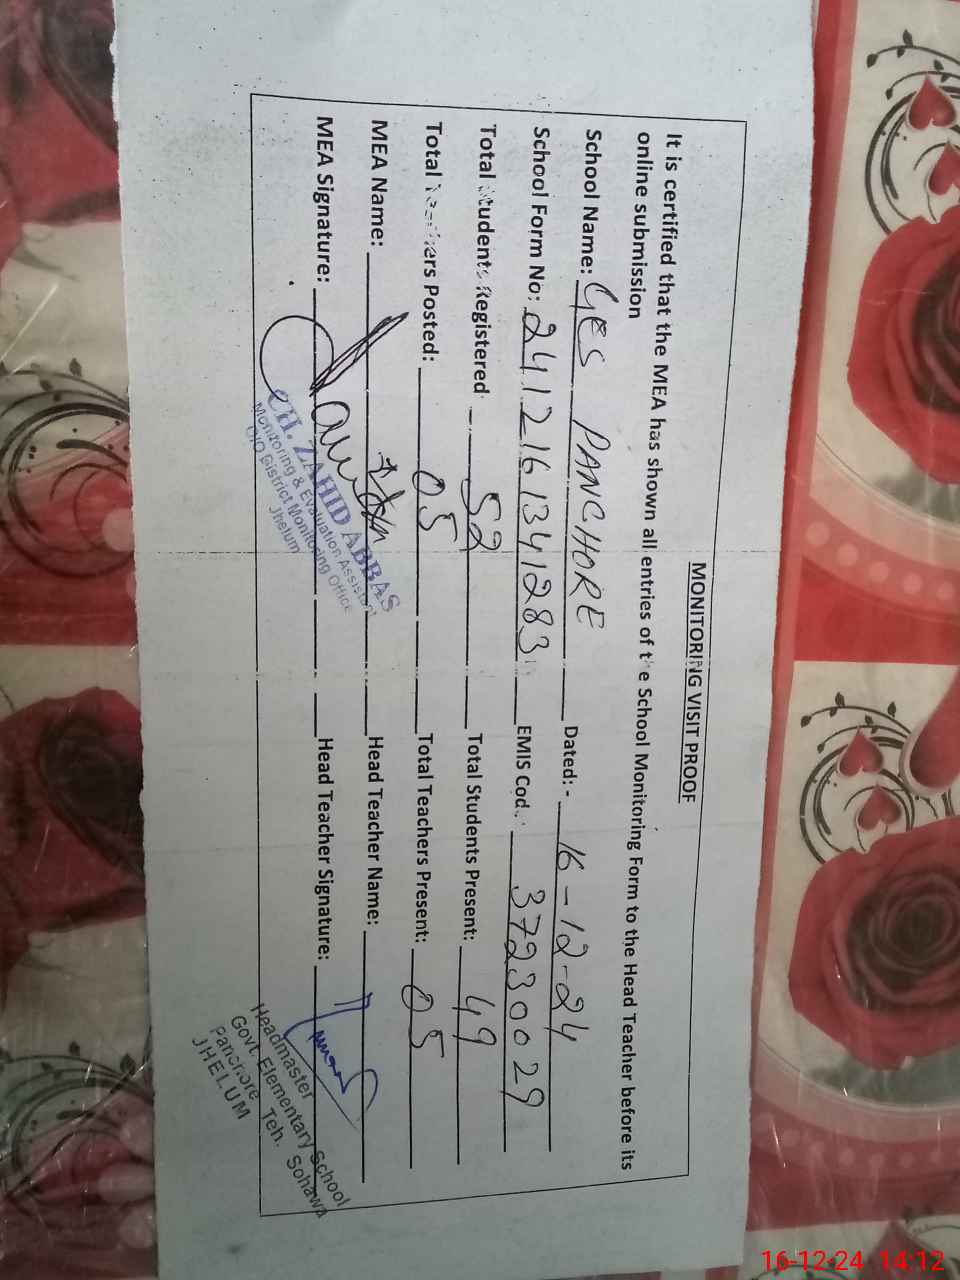 MONITORING VISIT PROOF
It is certified that the MEA has shown all entries of the School Monitoring Form to the Head Teacher before its
online submission
School Name: GES PANCHORE Dated:- 16-12-24
School Form No: 241216134128 3 EMIS Code: 37230029
Total Students Registered 52 Total Students Present: 49
Total Teachers Posted: 05 Total Teachers Present: 05
MEA Name: Head Teacher Name:
MEA Signature: Head Teacher Signature:
CH. ZAHID ABBAS
Monitoring & Evaluation Assistant
O/O District Monitoring Office
Jhelum
Headmaster
Govt. Elementary School
Panchore Teh. Sohawa
JHELUM
16-12-24 14:12